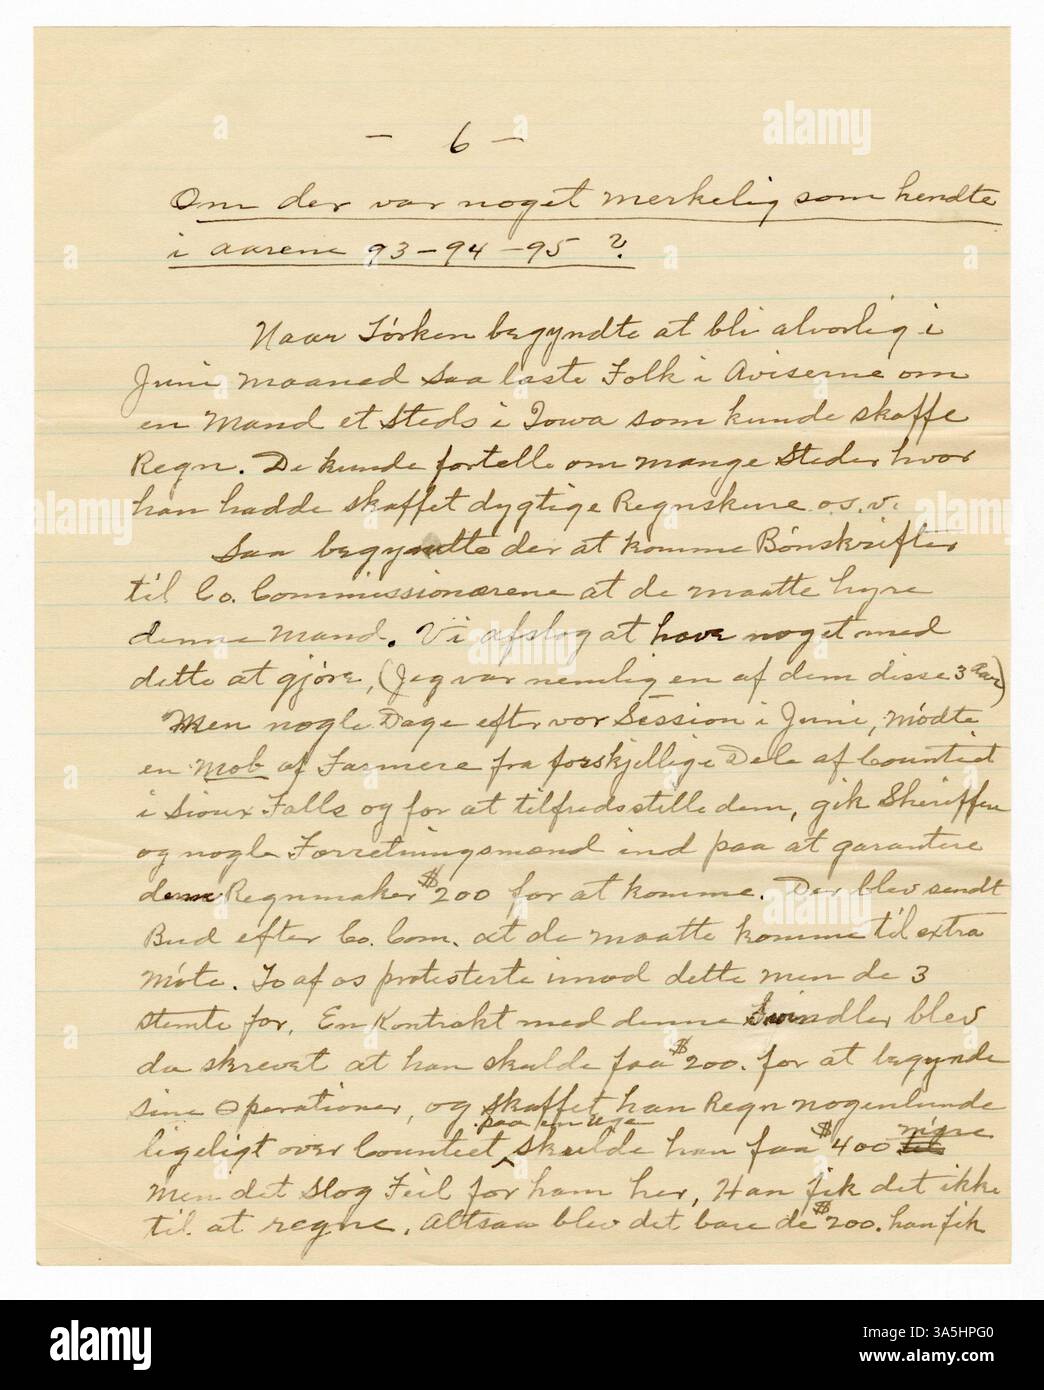 - 6 -
Om der var noget merkelig som hendte
i aarene 93-94-95 ?
Naar Tórken begyndte at bli alvorlig i
Juni maaned saa læste Folk i Aviserne om
en Mand et Steds i Iowa som kunde skaffe
Regn. De kunde fortelle om mange Steder hvor
han hadde skaffet dygtige Regnskure o.s.v.
Saa begyndte der at komme Bónskrifter
til Co. Commissionærene at de maatte hyre
denne Mand. Vi afslog at have noget med
dette at gjóre, (Jeg var nemlig en af dem disse 3 Aar)
Men nogle Dage efter vor Session i Juni, módte
en Mob af Farmere fra forskjellige Dele af Countiet
i Sioux Falls og for at tilfredsstille dem, gik Sheriffen
og nogle Forretningsmænd ind paa at garantere
denne Regnmaker $200 for at komme. Der blev sendt
Bud efter Co. Com. at de maatte komme til extra
Móte. To af os protesterte imod dette men de 3
stemte for. En Kontrakt med denne Svindler blev
da skrevet at han skulde faa $200. for at begynde
sine Operationer, og skaffet han Regn nogenlunde
paa en Uge
ligeligt over Countiet ^ skulde han faa $400 til mere
Men det slog Feil for ham her, Han fik det ikke
til at regne. Altsaa blev det bare de $200. han fik
alamy
alamy
alamy
alamy
alamy
a
a
a
a
a
a
a
a
a
alamy
Image ID: 3A5HPG0
www.alamy.com